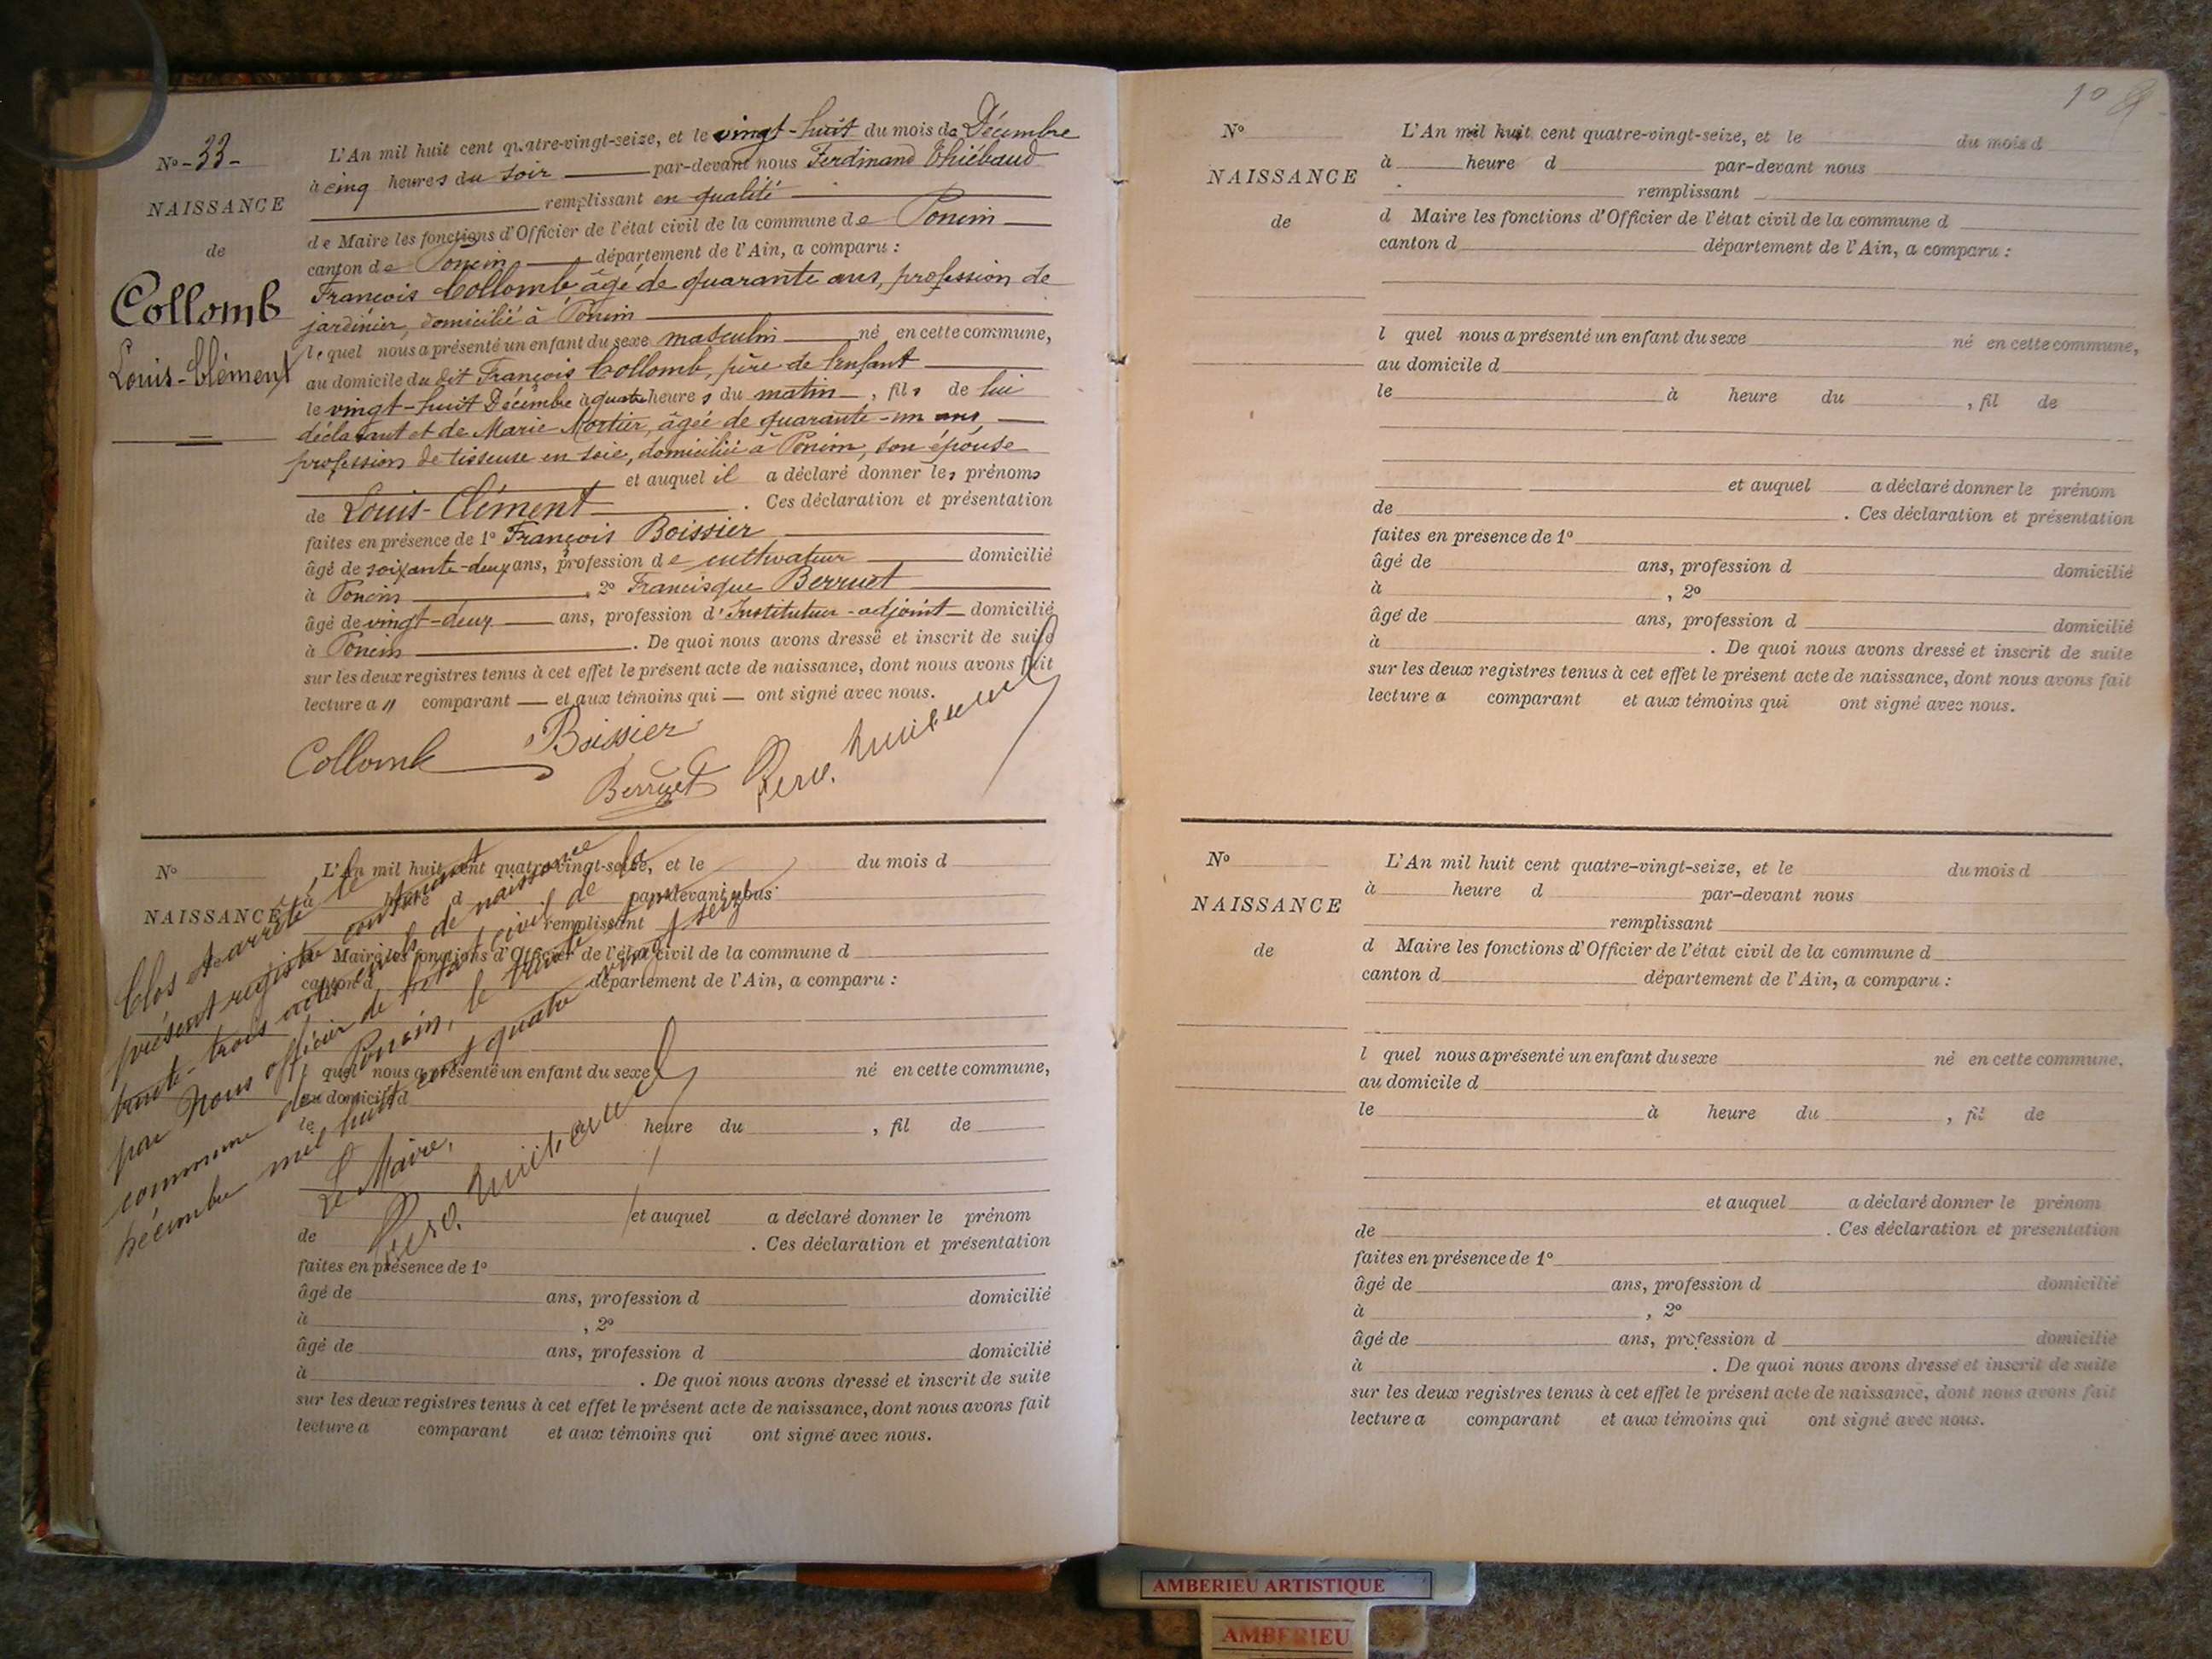 No - 33 -
NAISSANCE
de
Collomb
Louis-Clément
L'An mil huit cent quatre-vingt-seize, et le vingt-huit du mois de Décembre
à cinq heures du soir par-devant nous Ferdinand Thiébaud
remplissant en qualité
de Maire les fonctions d'Officier de l'état civil de la commune de Poncin
canton de Poncin département de l'Ain, a comparu :
François Collomb, âgé de quarante ans, profession de
jardinier, domicilié à Poncin
lequel nous a présenté un enfant du sexe masculin né en cette commune,
au domicile du dit François Collomb, père de l'enfant
le vingt-huit Décembre à quatre heures du matin, fils de lui
déclarant et de Marie Mortier, âgée de quarante-un ans
profession de tisseuse en soie, domiciliée à Poncin, son épouse
et auquel il a déclaré donner les prénoms
de Louis-Clément. Ces déclaration et présentation
faites en présence de 1o François Boissier
âgé de soixante-deux ans, profession de cultivateur domicilié
à Poncin, 2o Francisque Berruet
âgé de vingt-deux ans, profession d'Instituteur-adjoint domicilié
à Poncin. De quoi nous avons dressé et inscrit de suite
sur les deux registres tenus à cet effet le présent acte de naissance, dont nous avons fait
lecture au comparant et aux témoins qui ont signé avec nous.
Collomb Boissier
Berruet
No
NAISSANCE
L'An mil huit cent quatre-vingt-seize, et le du mois d
à heure d par-devant nous
remplissant
Maire les fonctions d'Officier de l'état civil de la commune d
canton d département de l'Ain, a comparu :
l quel nous a présenté un enfant du sexe né en cette commune,
au domicile d
le à heure du , fil de
et auquel a déclaré donner le prénom
de . Ces déclaration et présentation
faites en présence de 1o
âgé de ans, profession d domicilié
à , 2o
âgé de ans, profession d domicilié
à . De quoi nous avons dressé et inscrit de suite
sur les deux registres tenus à cet effet le présent acte de naissance, dont nous avons fait
lecture a comparant et aux témoins qui ont signé avec nous.
Clos et arrêté le
présent registre contenant
trente-trois actes de naissance
par Nous officier de l'état civil de la
commune de Poncin, le trente
Décembre mil huit cent quatre vingt seize
Le Maire,
No
NAISSANCE
de
L'An mil huit cent quatre-vingt-seize, et le du mois d
à heure d par-devant nous
remplissant
d Maire les fonctions d'Officier de l'état civil de la commune d
canton d département de l'Ain, a comparu :
l quel nous a présenté un enfant du sexe né en cette commune,
au domicile d
le à heure du , fil de
et auquel a déclaré donner le prénom
de . Ces déclaration et présentation
faites en présence de 1o
âgé de ans, profession d domicilié
à , 2o
âgé de ans, profession d domicilié
à . De quoi nous avons dressé et inscrit de suite
sur les deux registres tenus à cet effet le présent acte de naissance, dont nous avons fait
lecture a comparant et aux témoins qui ont signé avec nous.
No
NAISSANCE
de
L'An mil huit cent quatre-vingt-seize, et le du mois d
à heure d par-devant nous
remplissant
d Maire les fonctions d'Officier de l'état civil de la commune d
canton d département de l'Ain, a comparu :
l quel nous a présenté un enfant du sexe né en cette commune,
au domicile d
le à heure du , fil de
et auquel a déclaré donner le prénom
de . Ces déclaration et présentation
faites en présence de 1o
âgé de ans, profession d domicilié
à , 2o
âgé de ans, profession d domicilié
à . De quoi nous avons dressé et inscrit de suite
sur les deux registres tenus à cet effet le présent acte de naissance, dont nous avons fait
lecture a comparant et aux témoins qui ont signé avec nous.
AMBERIEU ARTISTIQUE
AMBERIEU